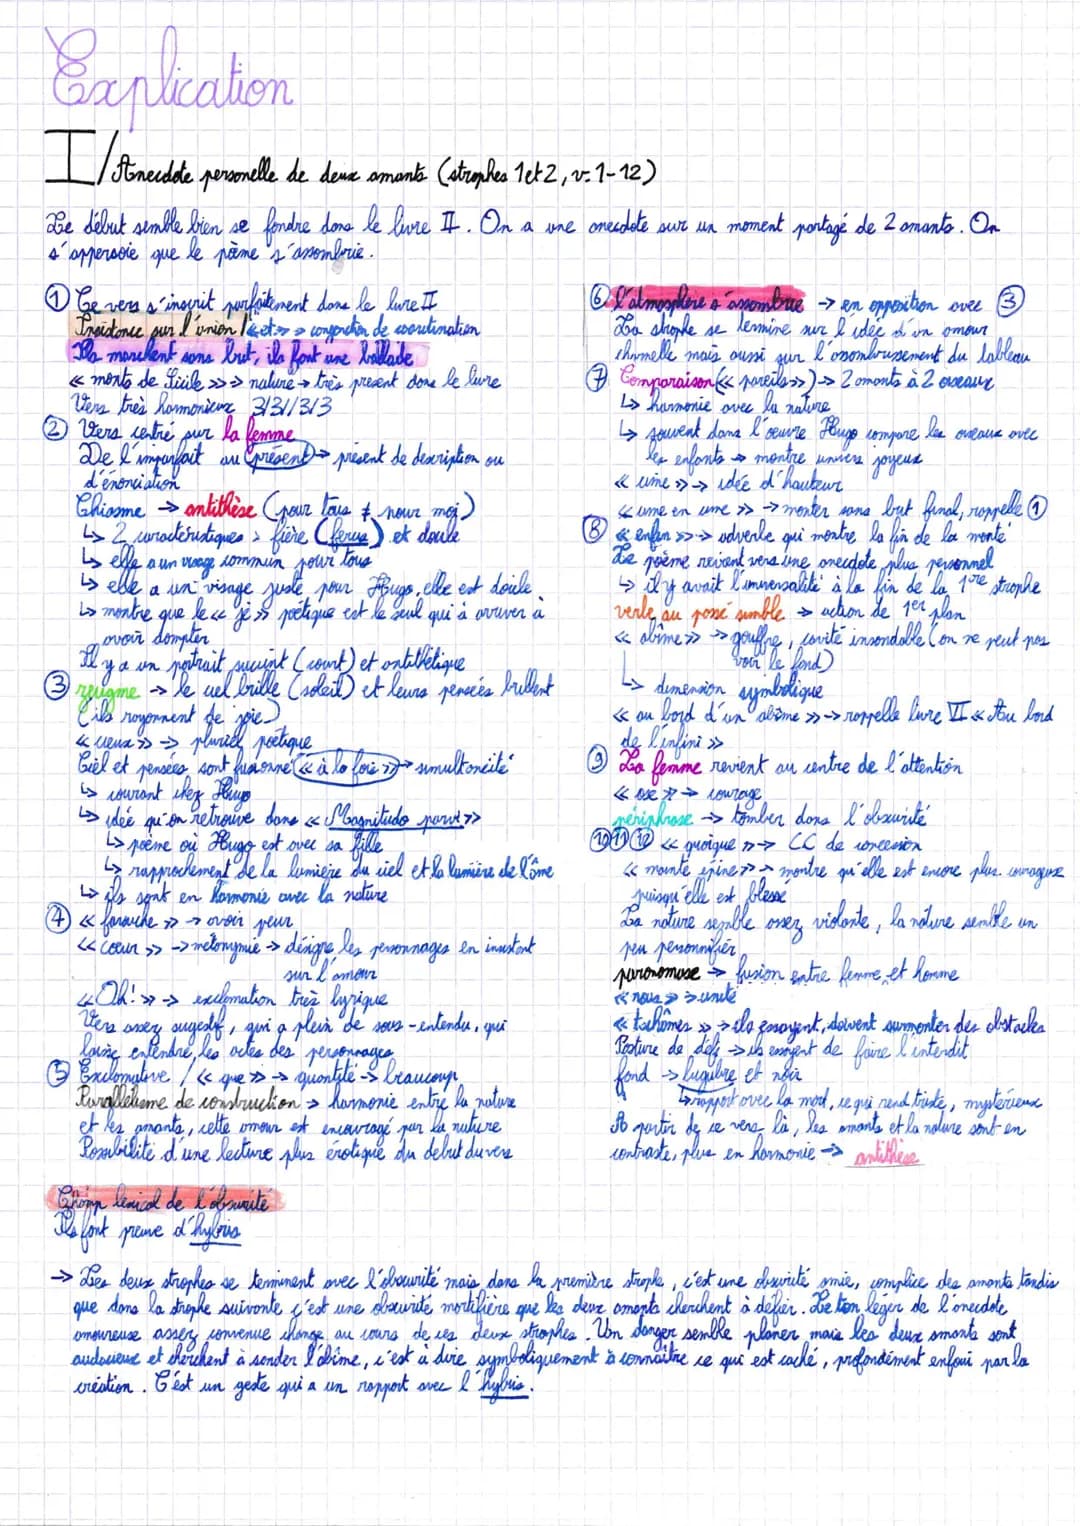 Explication
I/ Anecdote personelle de deux amants (strophes 1 et 2, v. 1-12)
Le début semble bien se fondre dans le livre II. On a une anecdote sur un moment partagé de 2 amants. On
s'appersoie que le pème s'assombrie.
① Ce vers s'inscrit parfaitement dans le livre II
Insistance sur l'union / « et » → conjonction de coordination
Ils marchent sans but, ils font une ballade
« monts de Sicile » → nature → très présent dans le livre
Vers très harmonieux 3/3//3/3
② Vers centré sur la femme
De l'imparfait au présent → présent de description ou
d'énonciation
Chiasme → antithèse (pour tous ≠ pour moi)
↳ 2 caractéristiques > fière (ferus) et docile
↳ elle a un visage commun pour tous
↳ elle a un visage juste pour Hugo, elle est docile
↳ montre que le « je » poétique est le seul qui à arriver à
avoir dompter
Il y a un portrait succint (court) et antithétique
③ zeugme → le ciel brille (soleil) et leurs pensées brillent
(ils rayonnent de joie)
« cieux » → pluriel poétique
Ciel et pensées sont fusionné « à la fois » → simultanéité
↳ courant chez Hugo
↳ idée qu'on retrouve dans « Magnitudo parvi »
↳ poème où Hugo est avec sa fille
↳ rapprochement de la lumière du ciel et la lumière de l'âme
↳ ils sont en harmonie avec la nature
④ « farouche » → avoir peur
« cœur » → métonymie → désigne les personnages en insistant
sur l'amour
« Oh! » → exclamation très lyrique
Vers assez sugestif, qui a plein de sous-entendu, qui
laisse entendre les actes des personnages
⑤ Exclamative / « que » → quantité → beaucoup
Parallélisme de construction → harmonie entre la nature
et les amants, cette amour est encouragé par la nature
Possibilité d'une lecture plus érotique du debut du vers
⑥ l'atmosphère s'assombrie → en opposition avec ③
La strophe se termine sur l'idée d'un amour
charnelle mais aussi sur l'assombrissement du tableau
⑦ Comparaison (« pareils ») → 2 amants à 2 oiseaux
↳ harmonie avec la nature
↳ souvent dans l'œuvre Hugo compare les oiseaux avec
les enfants → montre univers joyeux
« cime » → idée d'hauteur
« cime en cime » → monter sans but final, rappelle ①
⑧ « enfin » → adverbe qui montre la fin de la monté
Le poème revient vers une anecdote plus personnel
↳ il y avait l'universalité à la fin de la 1ère strophe
verbe au passé simple → action de 1er plan
« abîme » → gouffre, cavité insondable (on ne peut pas
voir le fond)
↳ dimension symbolique
« au bord d'un abîme » → rappelle livre VI « Au bord
de l'infini »
⑨ La femme revient au centre de l'attention
« ose » → courage
périphrase → tomber dans l'obscurité
⑩⑪⑫ « quoique » → CC de concession
« mainte épine » → montre qu'elle est encore plus courageuse
puisqu'elle est blessé
La nature semble assez violante, la nature semble un
peu personnifier
paronomase → fusion entre femme et homme
« nous » → unité
« tachâmes » → ils essayent, doivent surmonter des obstacles
Posture de défi → ils essayent de faire l'interdit
fond → lugubre et noir
↳ rapport avec la mort, ce qui rend triste, mystérieux
A partir de ce vers là, les amants et la nature sont en
contraste, plus en harmonie → antithèse
Champ lexical de l'obscurité
Ils font preuve d'hybris
→ Les deux strophes se terminent avec l'obscurité mais dans la première strophe, c'est une obscurité amie, complice des amants tandis
que dans la strophe suivante c'est une obscurité mortifière que les deux amants cherchent à défier. Le ton léger de l'anecdote
amoureuse assez convenue change au cours de ces deux strophes. Un danger semble planer mais les deux amants sont
audacieux et cherchent à sonder l'abîme, c'est à dire symboliquement à connaître ce qui est caché, profondément enfoui par la
création. C'est un geste qui a un rapport avec l'hybris.